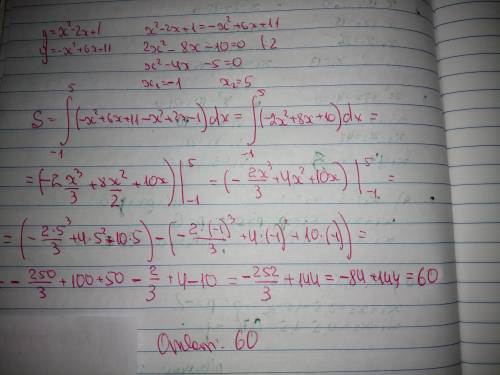 y=x²-2x+1    x²-2x+1=-x²+6x+11
y=-x²+6x+11    2x²-8x-10=0  (2
x²-4x-5=0
x₁=-1    x₂=5
S=∫₋₁⁵(-x²+6x+11-x²+2x-1)dx=∫₋₁⁵(-2x²+8x+10)dx=
=(-2x³/3+8x²/2+10x)|₋₁⁵=(-2x³/3+4x²+10x)|₋₁⁵=
=(-2·5³/3+4·5²+10·5)-(-2·(-1)³/3+4·(-1)²+10·(-1))=
--250/3+100+50-2/3+4-10=-252/3+144=-84+144=60
Ответ: 60